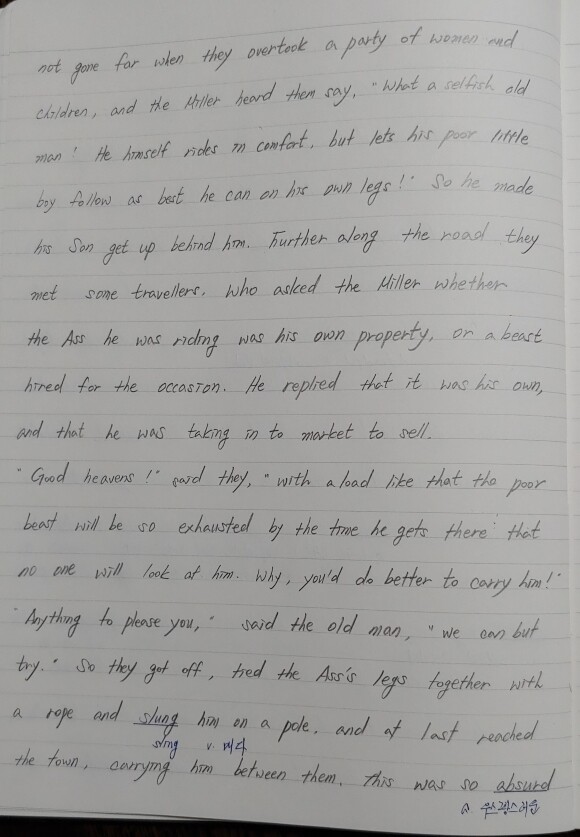 not gone far when they overtook a party of women and
children, and the Miller heard them say, "What a selfish old
man! He himself rides in comfort, but lets his poor little
boy follow as best he can on his own legs!" So he made
his Son get up behind him. Further along the road they
met some travellers, who asked the Miller whether
the Ass he was riding was his own property, or a beast
hired for the occasion. He replied that it was his own,
and that he was taking in to market to sell.
"Good heavens!" said they, "with a load like that the poor
beast will be so exhausted by the time he gets there that
no one will look at him. Why, you'd do better to carry him!"
"Anything to please you," said the old man, "we can but
try." So they got off, tied the Ass's legs together with
a rope and slung him on a pole, and at last reached
sling v. 메다
the town, carrying him between them. This was so absurd
a 우스꽝스러운